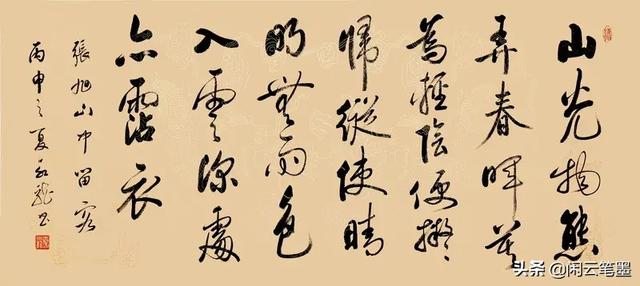 山光物態
弄春暉莫
為輕陰便擬
歸縱使晴
明無雨色
入雲深處
亦霑衣
張旭山中留客
丙申之夏龍書
头条 @闲云笔墨